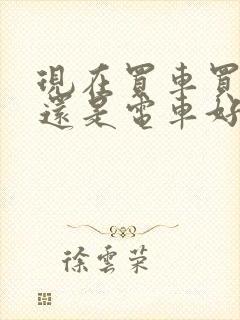 現在買車買
還是電車好
徐雲荣